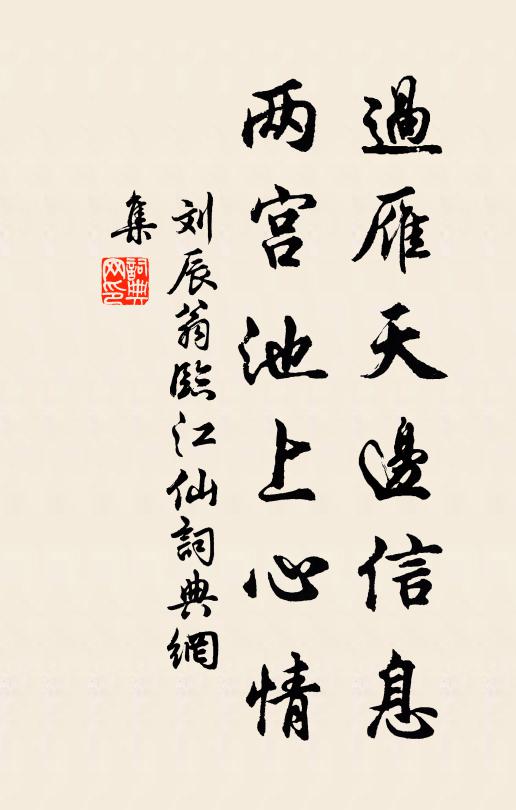 過雁天邊信息
两宫池上心情
刘辰翁臨江仙詞典網
集
詞典网印